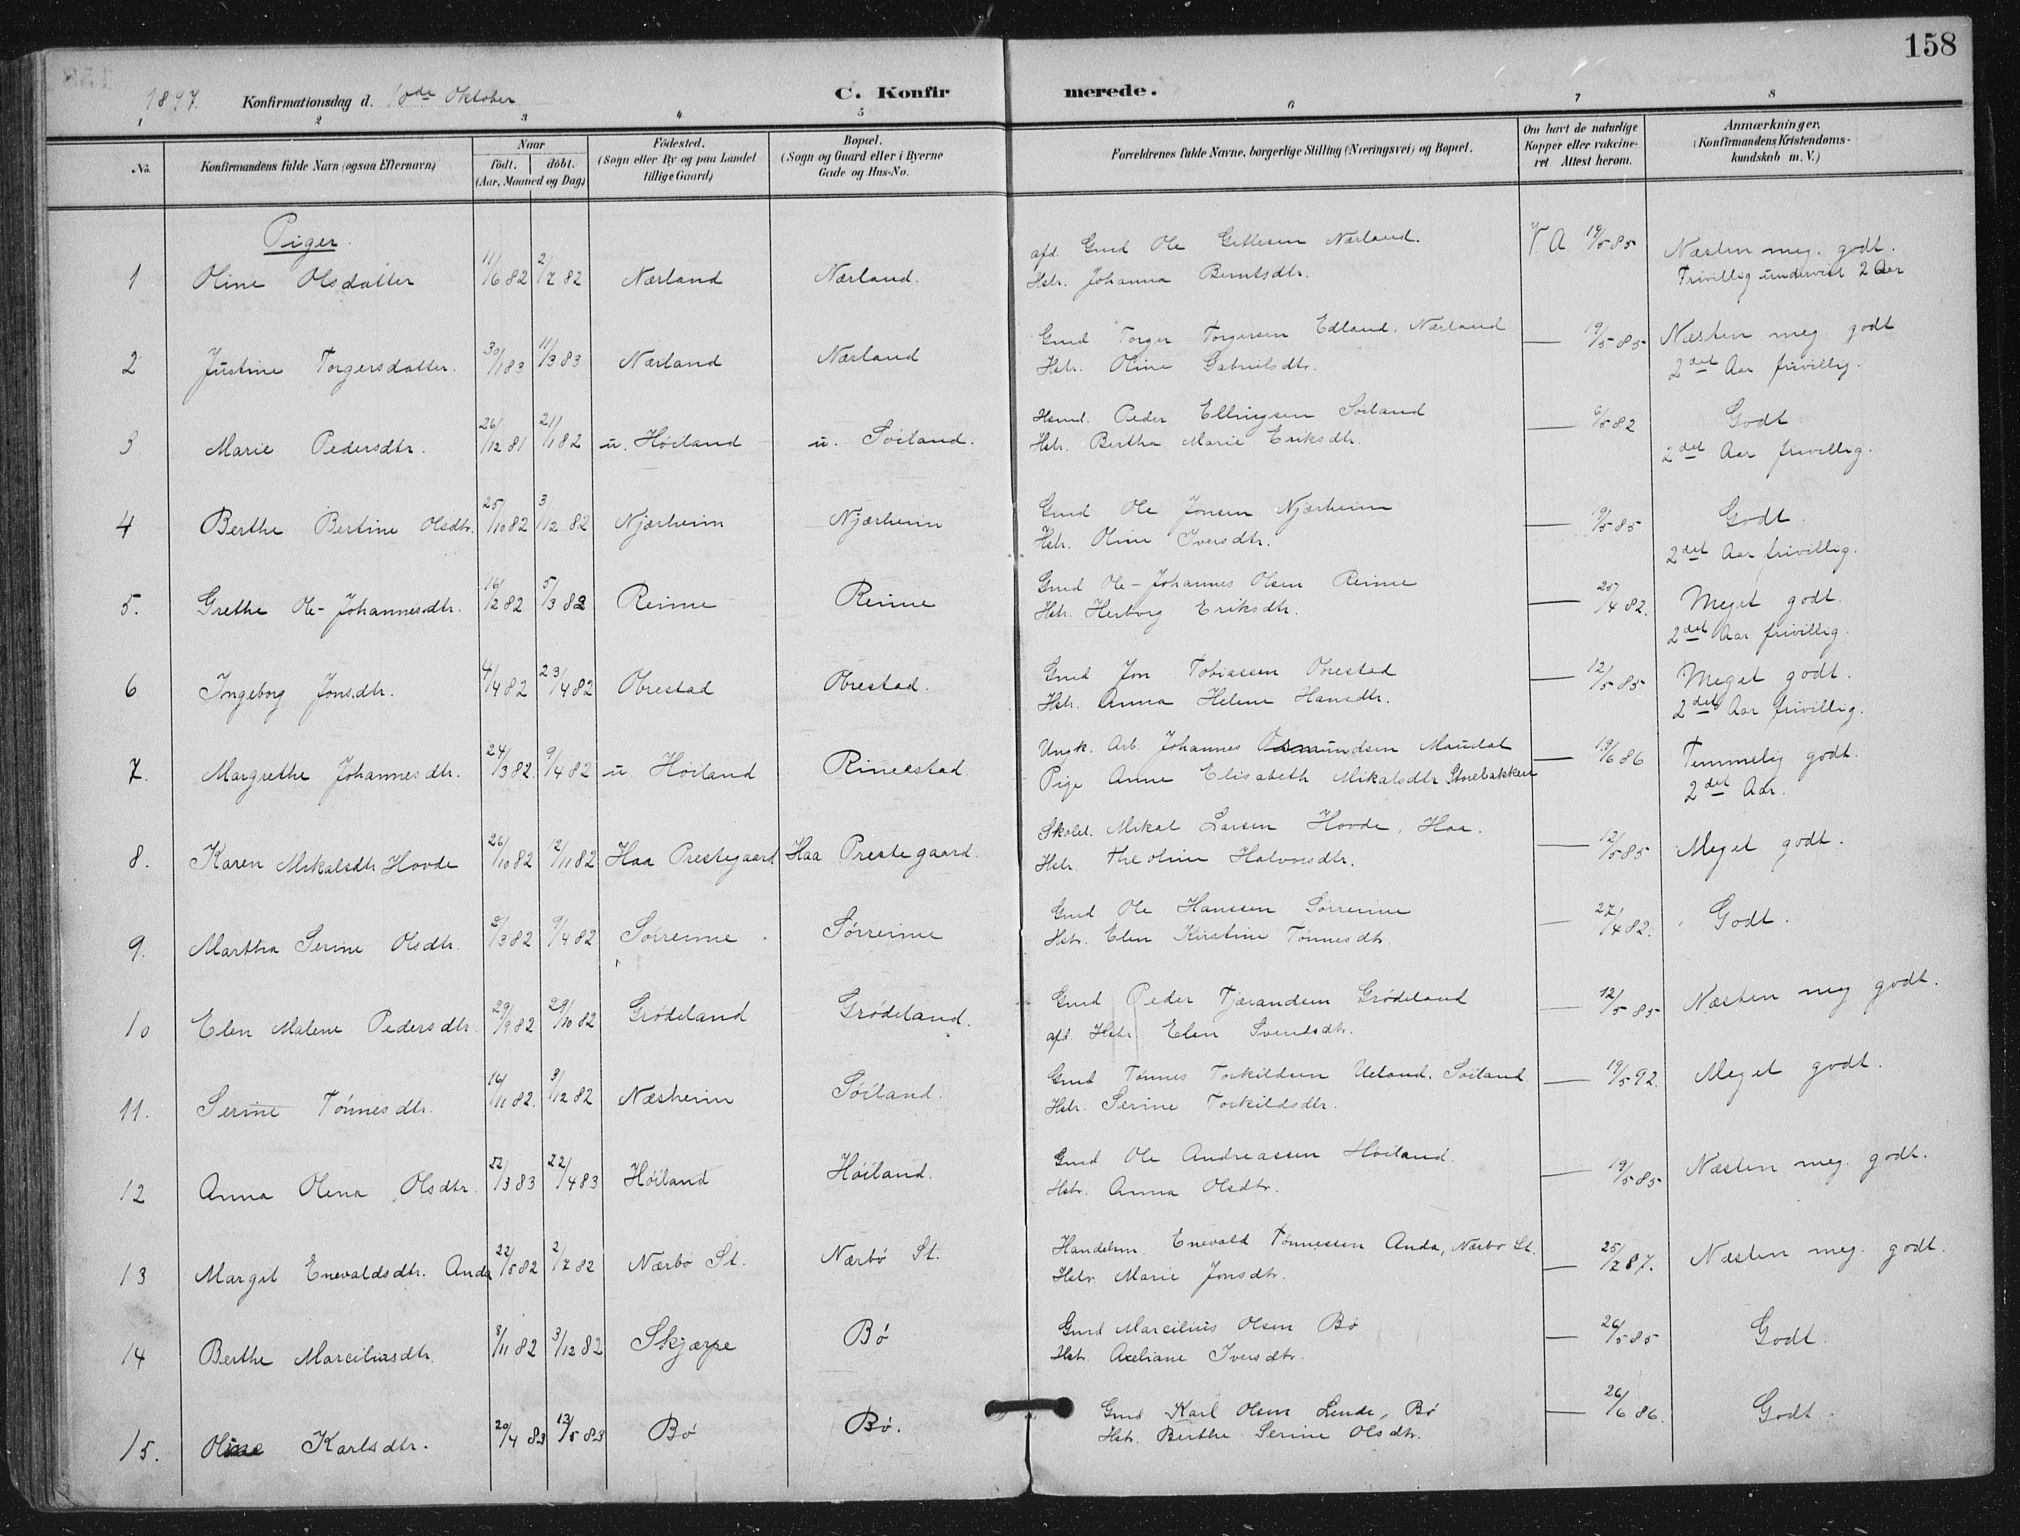 158
1897. Konfirmationsdag d. 10de Oktober C. Konfirmerede.
1 2 3 4 5 6 7 8
No. Konfirmandens fulde Navn (ogsaa Efternavn) Naar født. døbt. (Aar, Maaned og Dag) Fødested. (Sogn eller By og paa Landet tillige Gaard) Bopæl. (Sogn og Gaard eller i Byerne Gade og Hus-No. Forældrenes fulde Navne, borgerlige Stilling (Næringsvei) og Bopæl. Om havt de naturlige Kopper eller vakcineret Attest herom. Anmærkninger. (Konfirmandens Kristendomskundskab m. V.)
Piger.
afd. Gmd Ole Gitlesen Nærland. V. A 19/5 85 Næsten meg. godt.
1 Oline Olsdatter 11/6 82 2/7 82 Nærland Nærland. Hstr. Johanna Berntsdtr. Frivillig undervist 2 Aar
Gmd Torger Torgersen Edland. Nærland — 19/5 85 Næsten meg. godt
2 Justine Torgersdatter. 30/1 83 11/3 83 Nærland Nærland Hstr. Oline Gabrielsdtr. 2det Aar frivillig.
Hsmd. Peder Ellingsen Søiland — 6/5 82 Godt
3 Marie Pedersdtr. 26/12 81 21/1 82 u. Høiland u. Søiland. Hstr. Bertha Marie Eriksdtr. 2det Aar frivillig.
Gmd Ole Jonsen Njærheim — 19/5 85 Godt.
4 Berthe Bertine Olsdtr. 25/10 82 3/12 82 Njærheim Njærheim Hstr. Oline Iversdtr. 2det Aar frivillig.
Gmd Ole-Johannes Olsen Reime — 25/4 82. Meget godt.
5. Grethe Ole-Johannesdtr. 16/2 82 5/3 82 Reime Reime Hstr. Herborg Eriksdtr. 2det Aar frivillig.
Gmd Jon Tobiassen Obrestad — 12/5 85 Meget godt.
6 Ingeborg Jonsdtr. 4/4 82 23/4 82 Obrestad Obrestad. Hstr. Anna Helene Hansdtr. 2det Aar frivillig.
Ungk. Arb. Johannes Osmundsen Maudal — 19/6 86 Temmelig godt.
7. Margrethe Johannesdtr. 24/3 82. 9/4 82 u. Høiland Pige Anne Elisabeth Mikalsdtr Storebakken 2det Aar.
Skolel. Mikal Larsen Hovde, Haa. — 12/5 85 Meget godt.
8. Karen Mikalsdtr Hovde 26/10 82 12/11 82 Haa Prestegaard Haa Prestegaard. Hstr. Theoline Halvorsdtr.
Gmd Ole Hanssen Sørreime — 27/4 82. Godt.
9. Martha Serine Olsdtr. 3/3 82 9/4 82 Sørreime Sørreime Hstr. Elen Kirstine Tønnesdtr.
Gmd Peder Tjærandsen Grødeland — 12/5 85 Næsten meg godt.
10 Elen Malene Pedersdtr. 29/9 82 29/10 82 Grødeland Grødeland. afd. Hstr. Elen Svendsdtr.
Gmd Tønnes Torkildsen Ueland. Søiland — 19/5 92. Meget godt.
11. Serine Tønnesdtr. 16/11 82. 3/12 82 Næsheim Søiland. Hstr. Serine Torkildsdtr.
Gmd Ole Andreassen Høiland. — 19/5 85 Næsten meg. godt.
12 Anna Olena Olsdtr. 22/3 83 22/4 83 Høiland Høiland. Hstr. Anna Olsdtr.
Handelsm. Enevald Tønnessen Anda, Nærbø St. — 25/7 87. Næsten meg. godt.
13 Margit Enevaldsdtr. Anda 22/5 82 2/7 82 Nærbø St. Nærbø St. Hstr Marie Jonsdtr.
Gmd Marcilius Olsen Bø — 26/5 85 Godt.
14 Berthe Marciliusdtr. 8/11 82 3/12 82 Skjærpe Bø Hstr. Axeliane Iversdtr.
Gmd Karl Olsen Lende, Bø — 26/6 86. Godt.
15. Oline Karlsdtr. 20/4 83 13/5 83 Bø Bø. Hstr. Berthe Serine Olsdtr.